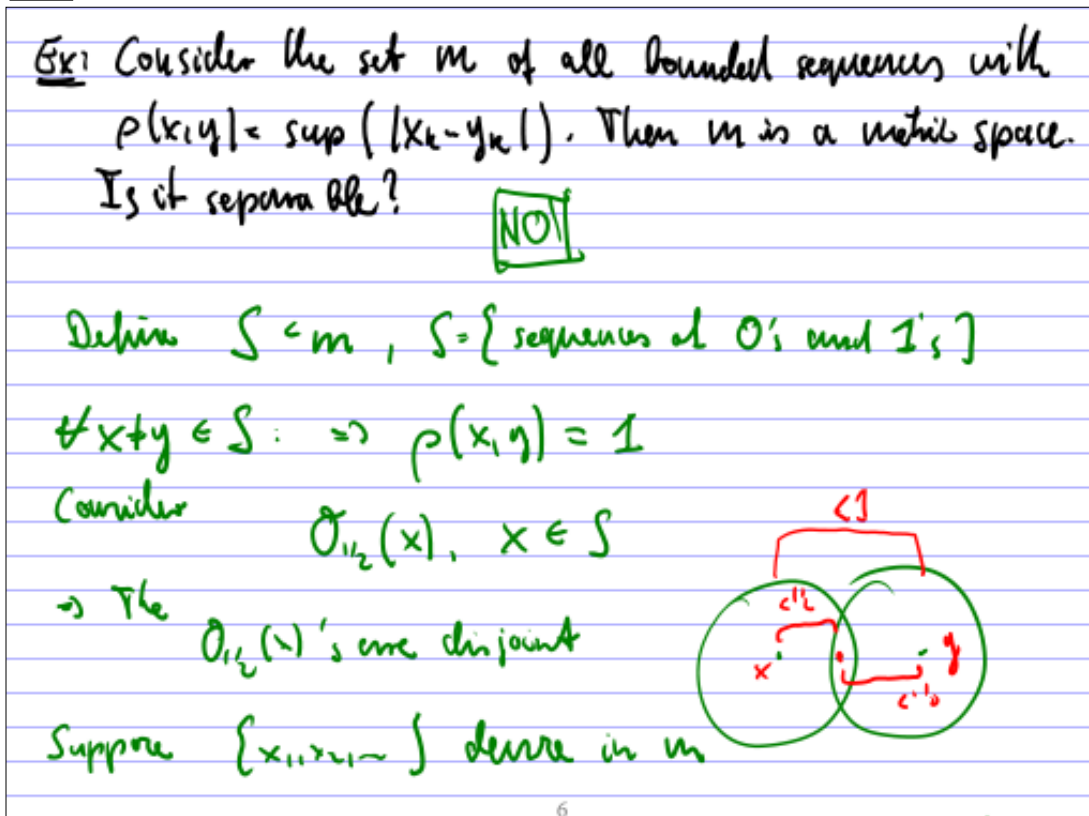 Ex: Consider the set m of all bounded sequences with
ρ(x,y) = sup (|xₖ-yₖ|). Then m is a metric space.
Is it separable?
NO!
Define S ⊂ m, S = { sequences of 0's and 1's }
∀ x≠y ∈ S: ⇒ ρ(x,y) = 1
Consider
O₁/₂(x), x ∈ S
⇒ The
O₁/₂(x)'s are disjoint
<1
<1/2
x
y
<1/2
Suppose {x₁,x₂,...} dense in m
6